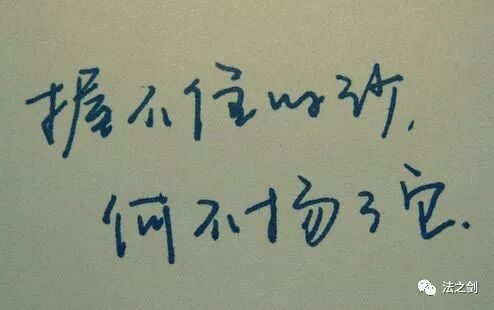 握不住的沙,
何不扬了它.
法之剑